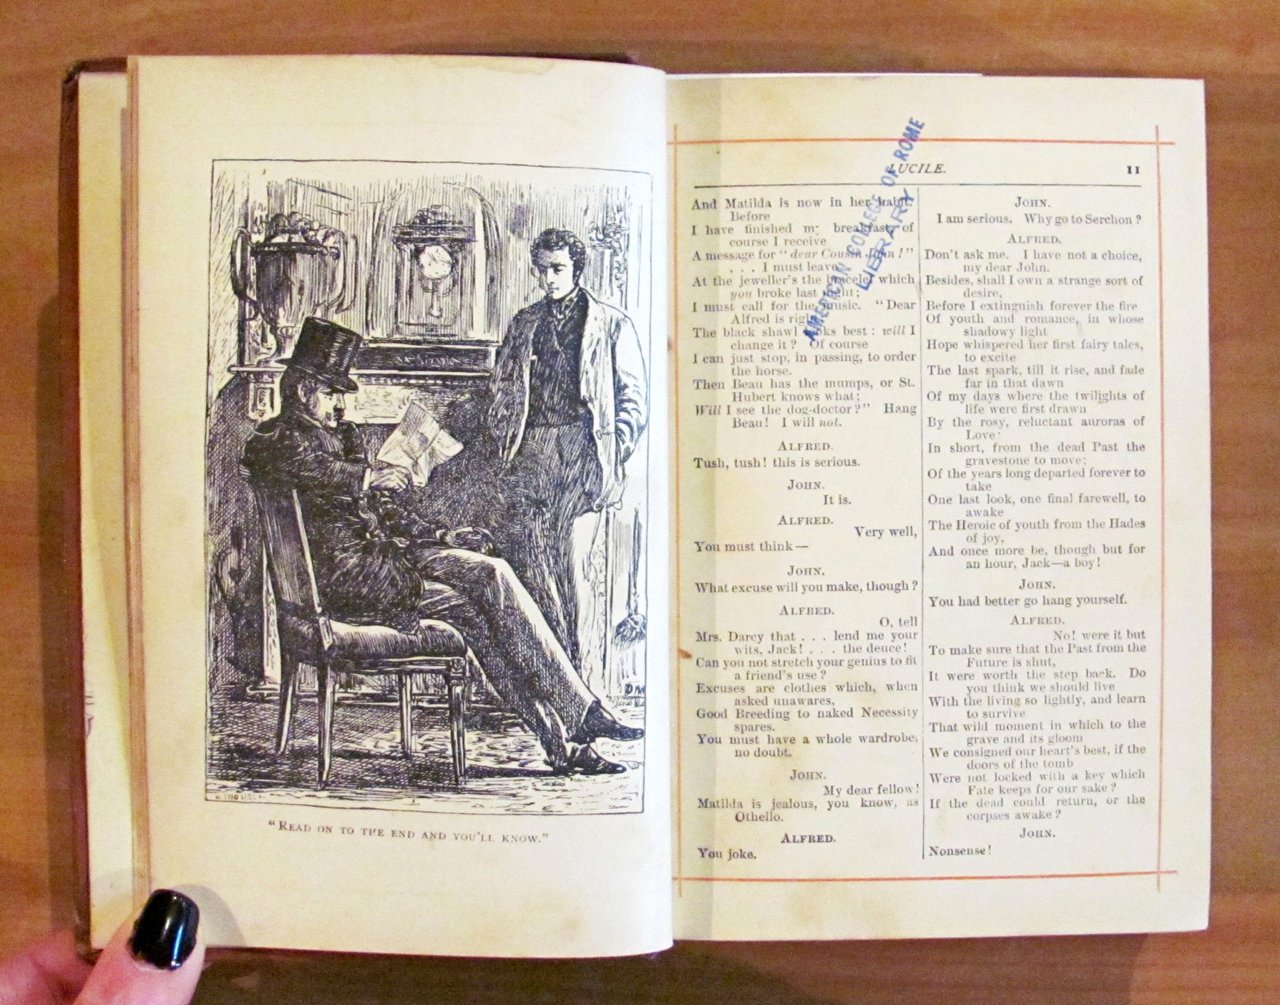 "READ ON TO THE END AND YOU'LL KNOW."
LUCILE.
11
AMERICAN COLLEGE OF ROME
LIBRARY
And Matilda is now in her habit.
Before
I have finished my breakfast, of
course I receive
A message for "dear Cousin John!"
. . . I must leave
At the jeweller's the bracelet which
you broke last night;
I must call for the music. "Dear
Alfred is right:
The black shawl looks best: will I
change it? Of course
I can just stop, in passing, to order
the horse.
Then Beau has the mumps, or St.
Hubert knows what;
Will I see the dog-doctor?" Hang
Beau! I will not.
ALFRED.
Tush, tush! this is serious.
JOHN.
It is.
ALFRED.
Very well,
You must think —
JOHN.
What excuse will you make, though?
ALFRED.
O, tell
Mrs. Darcy that . . . lend me your
wits, Jack! . . . the deuce!
Can you not stretch your genius to fit
a friend's use?
Excuses are clothes which, when
asked unawares,
Good Breeding to naked Necessity
spares.
You must have a whole wardrobe,
no doubt.
JOHN.
My dear fellow!
Matilda is jealous, you know, as
Othello.
ALFRED.
You joke.
JOHN.
I am serious. Why go to Serchon?
ALFRED.
Don't ask me. I have not a choice,
my dear John.
Besides, shall I own a strange sort of
desire,
Before I extinguish forever the fire
Of youth and romance, in whose
shadowy light
Hope whispered her first fairy tales,
to excite
The last spark, till it rise, and fade
far in that dawn
Of my days where the twilights of
life were first drawn
By the rosy, reluctant auroras of
Love:
In short, from the dead Past the
gravestone to move;
Of the years long departed forever to
take
One last look, one final farewell, to
awake
The Heroic of youth from the Hades
of joy,
And once more be, though but for
an hour, Jack—a boy!
JOHN.
You had better go hang yourself.
ALFRED.
No! were it but
To make sure that the Past from the
Future is shut,
It were worth the step back. Do
you think we should live
With the living so lightly, and learn
to survive
That wild moment in which to the
grave and its gloom
We consigned our heart's best, if the
doors of the tomb
Were not locked with a key which
Fate keeps for our sake?
If the dead could return, or the
corpses awake?
JOHN.
Nonsense!